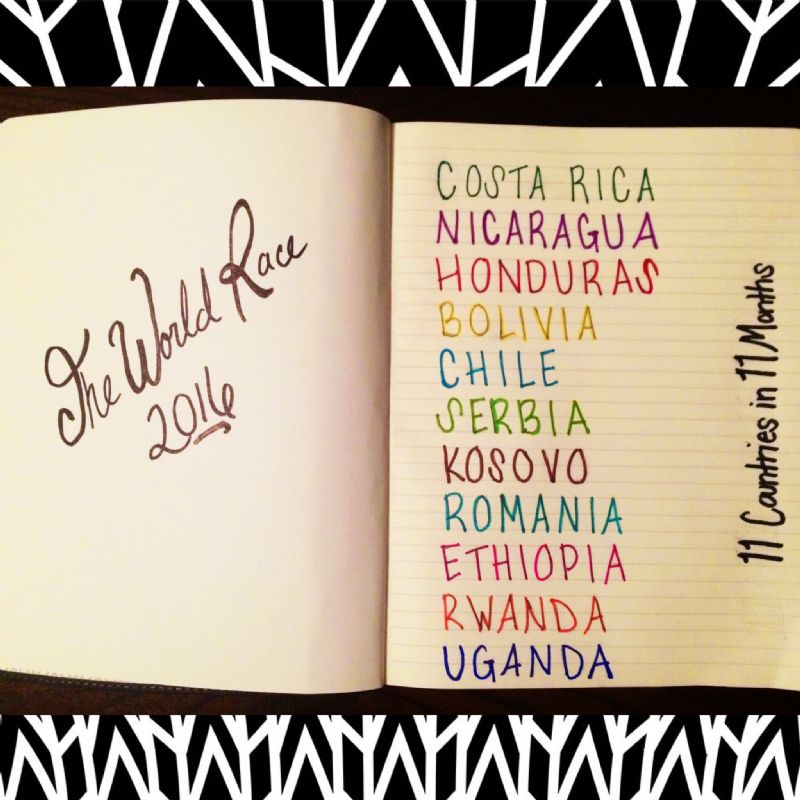 The World Race
2016
COSTA RICA
NICARAGUA
HONDURAS
BOLIVIA
CHILE
SERBIA
KOSOVO
ROMANIA
ETHIOPIA
RWANDA
UGANDA
11 Countries in 11 Months